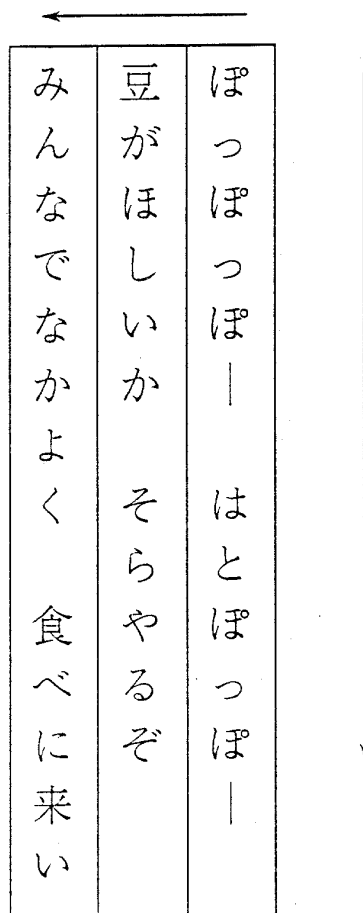 ぽっぽっぽー　はとぽっぽー
豆がほしいか　そらやるぞ
みんなでなかよく　食べに来い